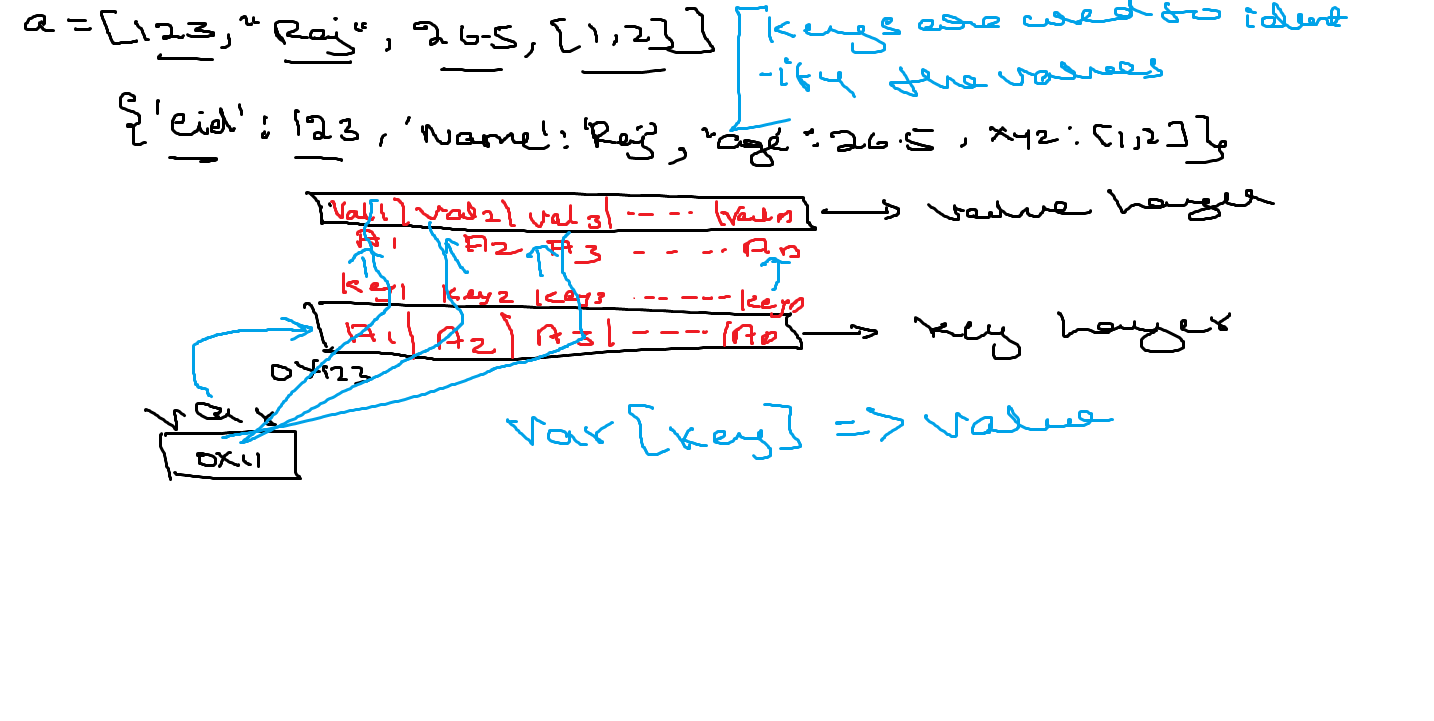 a = [123, "Raj", 26.5, [1,2]]
keys are used to ident
-ify the values
{'eid': 123, 'Name': 'Raj', "age": 26.5, xyz: [1,2]}
val1 val2 val3 ---- valn → value layer
A1 A2 A3 ---- An
key1 key2 key3 ------ keyn
A1 A2 A3 ---- An → key layer
var
0x11
var[key] => value